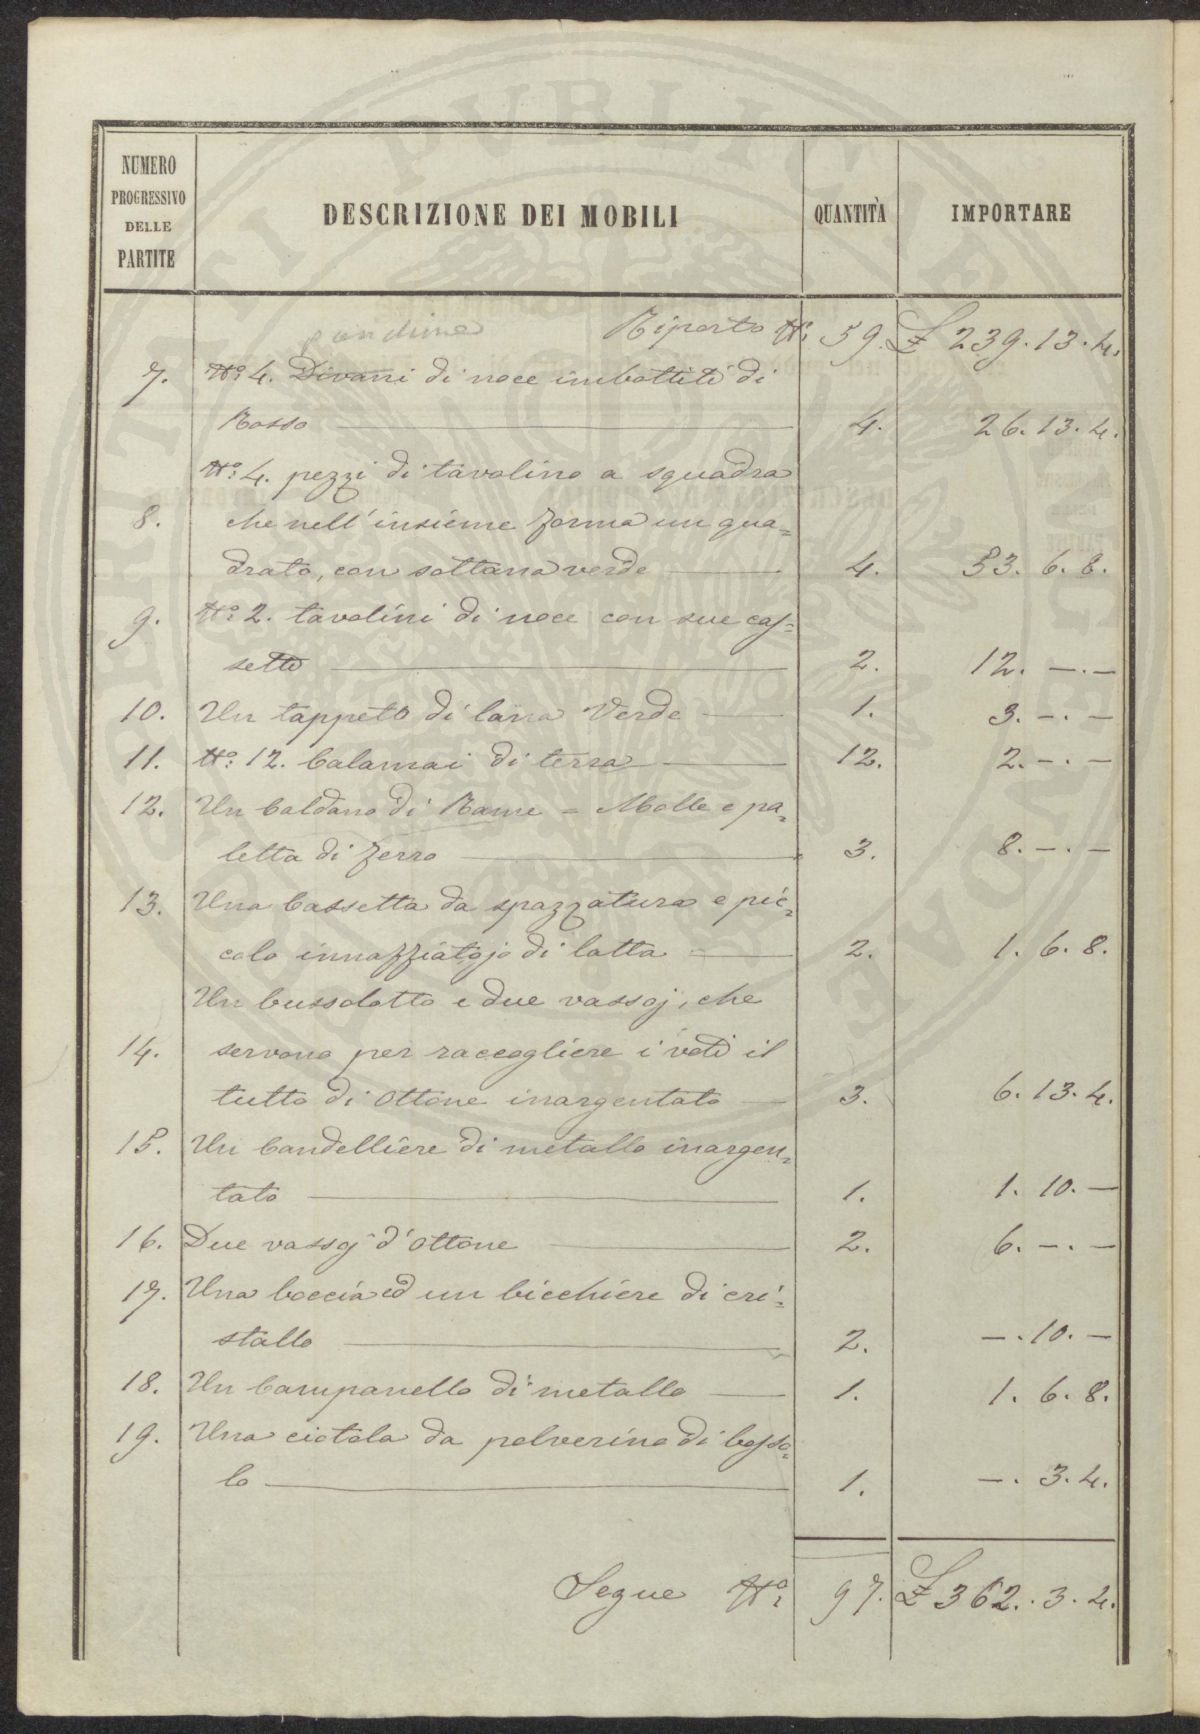 NUMERO PROGRESSIVO DELLE PARTITE DESCRIZIONE DEI MOBILI QUANTITÀ IMPORTARE
Riporto N° 59. £ 239.13.4.
7. N° 4. Divani di noce imbottiti di
Rosso 4. 26.13.4.
N° 4. pezzi di tavolino a squadra
8. che nell'insieme forma un qua=
drato, con sottana verde 4. 53.6.8.
9. N° 2. tavolini di noce con sue cas=
sette 2. 12.–.–
10. Un tappeto di lana Verde 1. 3.–.–
11. N° 12. Calamai di terra 12. 2.–.–
12. Un Caldano di Rame = Molle e pa=
letta di ferro 3. 8.–.–
13. Una Cassetta da spazzatura e pic=
colo innaffiatojo di latta 2. 1.6.8.
Un bussolotto e due vassoj, che
14. servono per raccogliere i voti il
tutto di Ottone inargentato 3. 6.13.4.
15. Un Candelliere di metallo inargen=
tato 1. 1.10.–
16. Due vassoj d'Ottone 2. 6.–.–
17. Una boccia ed un bicchiere di cri=
stallo 2. –.10.–
18. Un Campanello di metallo 1. 1.6.8.
19. Una ciotola da polverino di bosso=
lo 1. –.3.4.
Segue N° 97. £ 362.3.4.